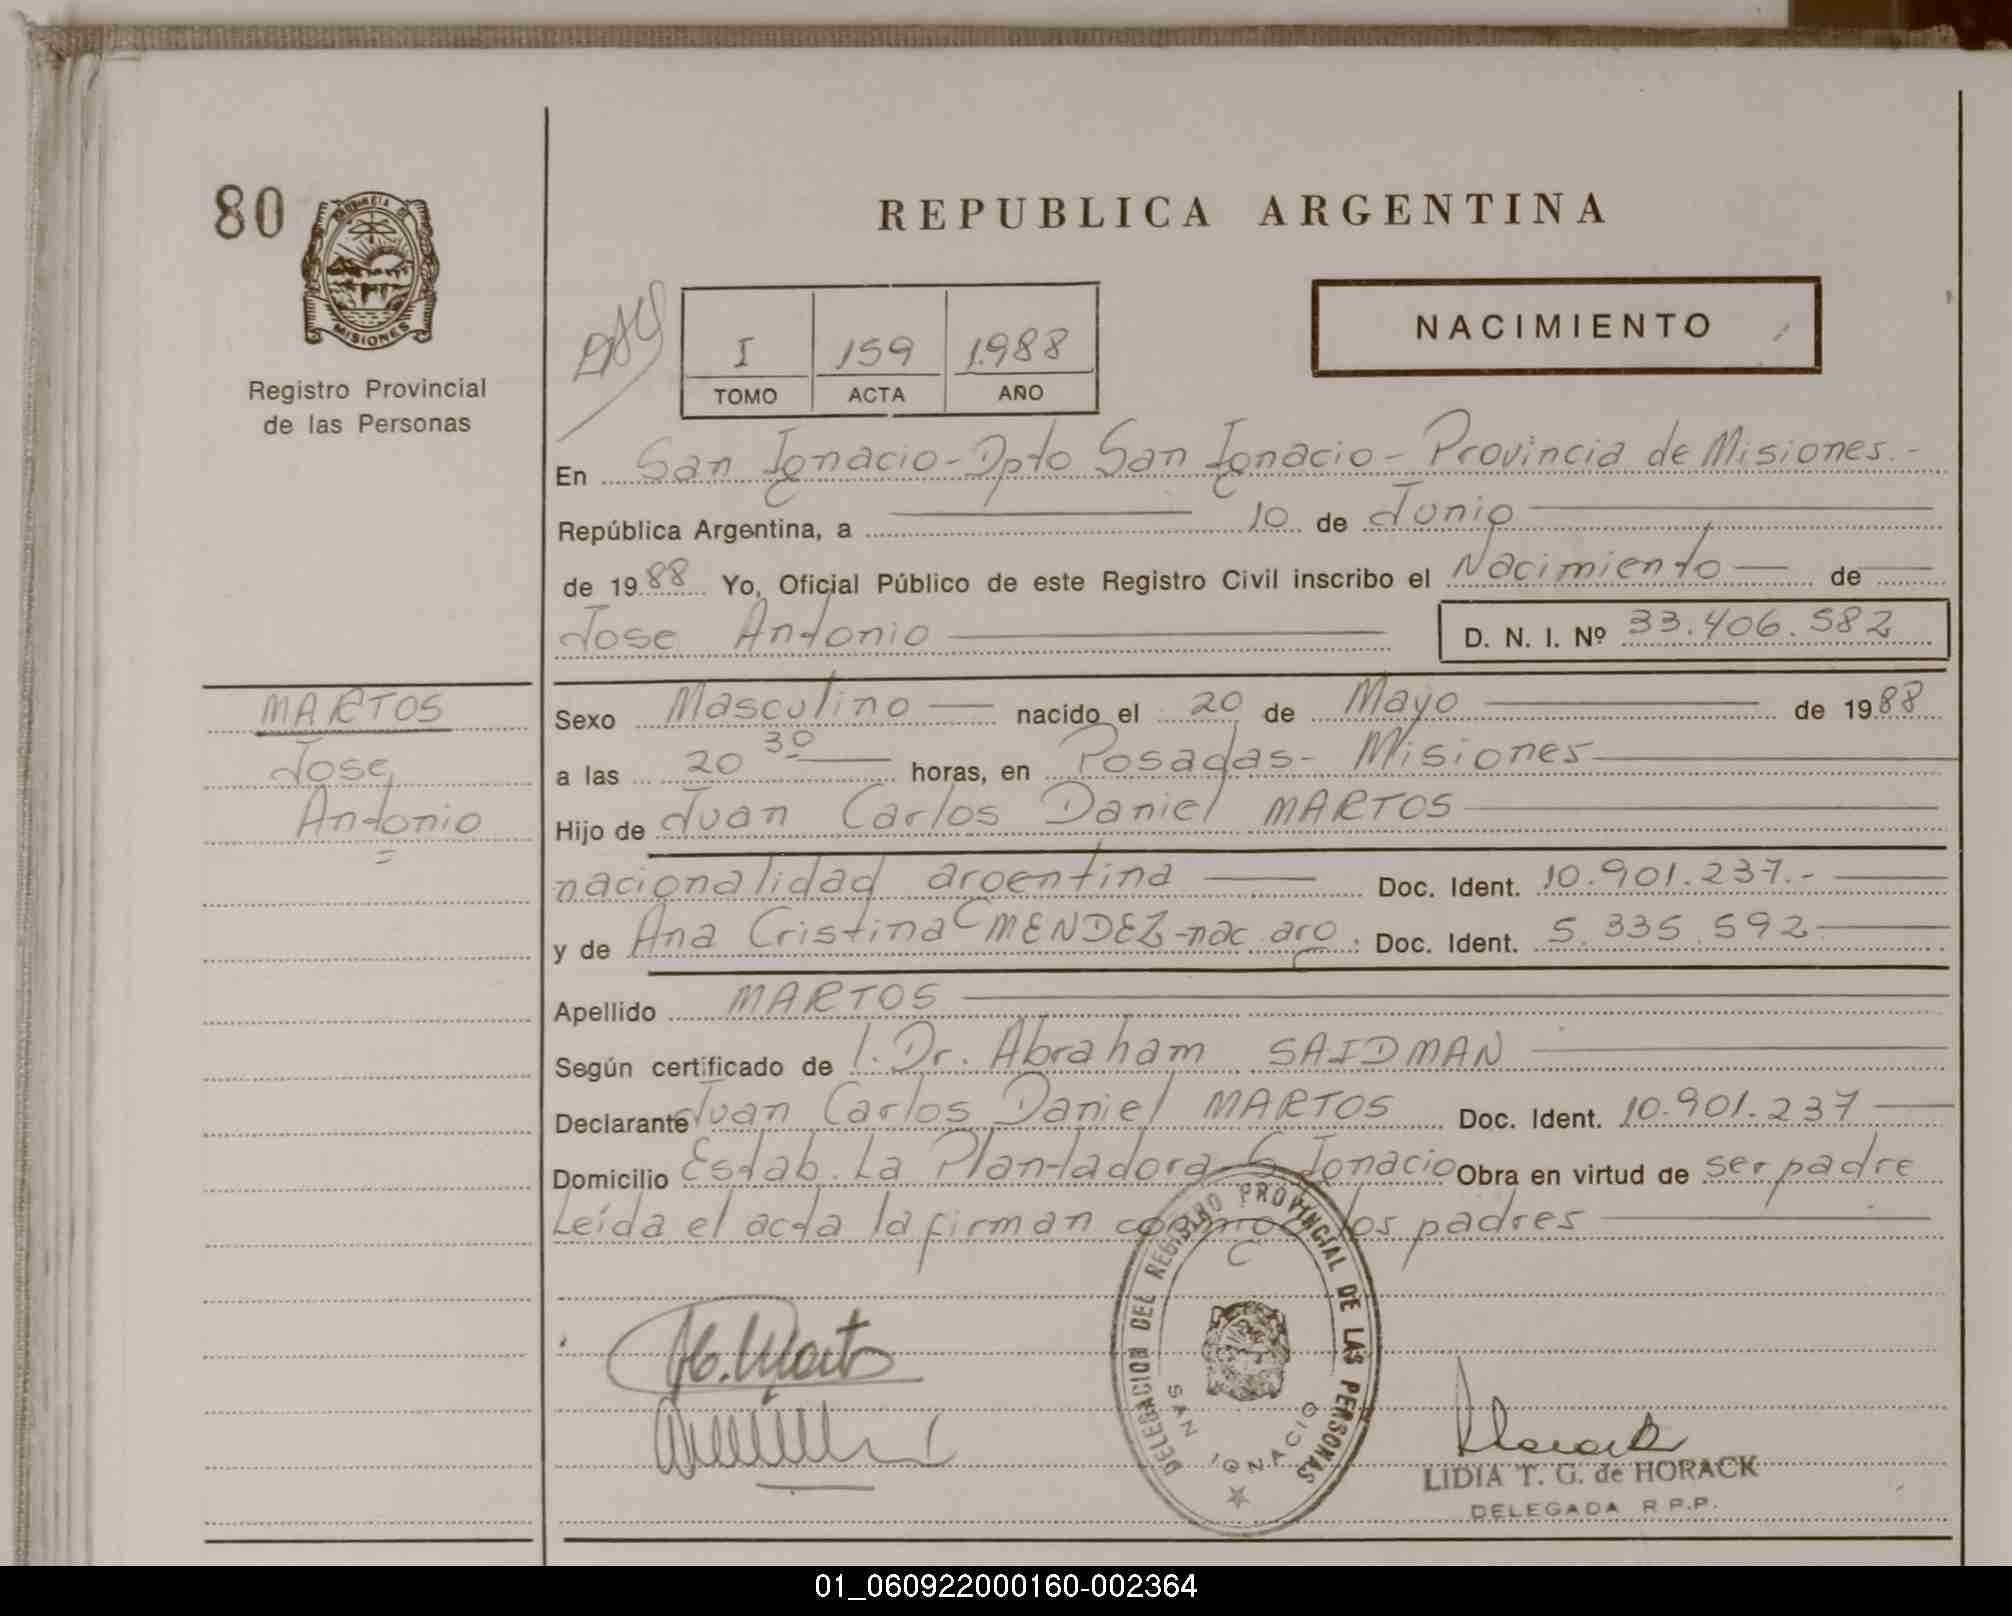 80
PROVINCIA DE
MISIONES
Registro Provincial
de las Personas
REPUBLICA ARGENTINA
I 159 1988
TOMO ACTA AÑO
NACIMIENTO
En San Ignacio-Dpto San Ignacio- Provincia de Misiones.-
República Argentina, a 10 de Junio
de 1988 Yo, Oficial Público de este Registro Civil inscribo el Nacimiento de
Jose Antonio D. N. I. Nº 33.406.582
MARTOS
Jose
Antonio
Sexo Masculino nacido el 20 de Mayo de 1988
a las 20 30 horas, en Posadas- Misiones
Hijo de Juan Carlos Daniel MARTOS
nacionalidad argentina Doc. Ident. 10.901.237.-
y de Ana Cristina MENDEZ-nac arg. Doc. Ident. 5.335.592
Apellido MARTOS
Según certificado de 1. Dr. Abraham SAIDMAN
Declarante Juan Carlos Daniel MARTOS Doc. Ident. 10.901.237
Domicilio Estab. La Plantadora-S. Ignacio Obra en virtud de ser padre
Leída el acta la firman conmigo los padres
DELEGACION DEL REGISTRO PROVINCIAL DE LAS PERSONAS
SAN IGNACIO
Horack
LIDIA T. G. de HORACK
DELEGADA R.P.P.
01_060922000160-002364